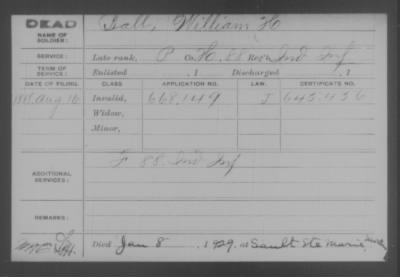 DEAD
NAME OF SOLDIER: Gall, William H
SERVICE: Late rank, P Co. H, 88 Reg't Ind Inf
TERM OF SERVICE: Enlisted , 1 Discharged , 1
DATE OF FILING. CLASS APPLICATION NO. LAW. CERTIFICATE NO.
1888 Aug 16 Invalid, 668,149 J 645,456
Widow,
Minor,
ADDITIONAL SERVICES: F 88 Ind Inf
REMARKS:
Died Jan 8 , 1929, at Sault Ste Marie,